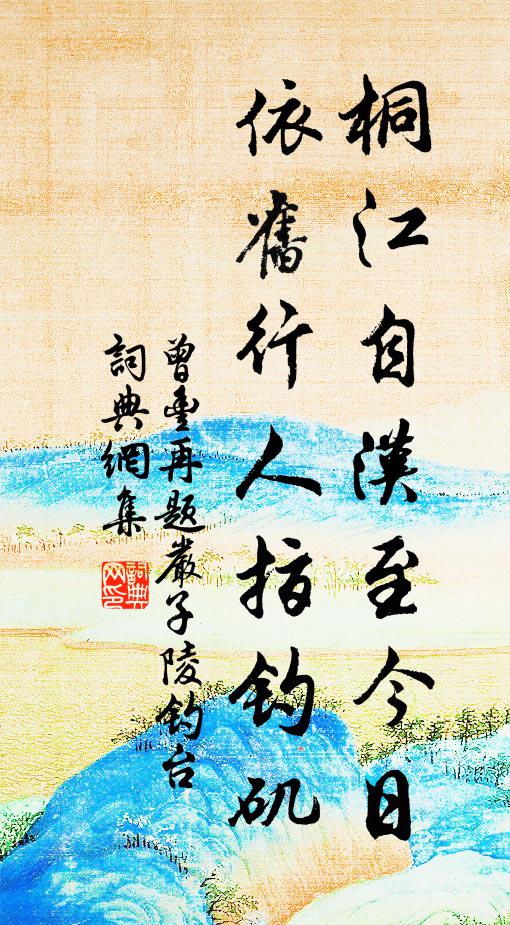 桐江自漢至今日
依舊行人指釣磯
曾豐再題嚴子陵釣台
詞典網集
詞典网印